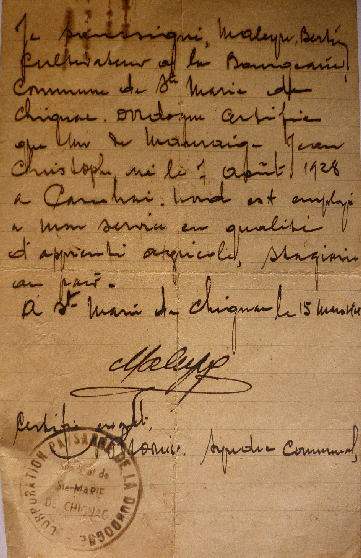 Je soussigné, Maleyre, Bertin
Cultivateur à la Bourgearie,
Commune de Ste Marie de
Chignac. Dordogne certifie
que Mr de Jean
Christoph, né le 1 Août 1928
à Cambrai. Nord est employé
à mon service en qualité
d'apprenti agricole, stagiaire
au pair.
A Ste Marie de Chignac le 15 Mars
Maleyre
Certifié exact,
Syndic Communal,
CORPORATION PAYSANNE DE LA DORDOGNE
Syndical de
Ste-MARIE
DE CHIGNAC